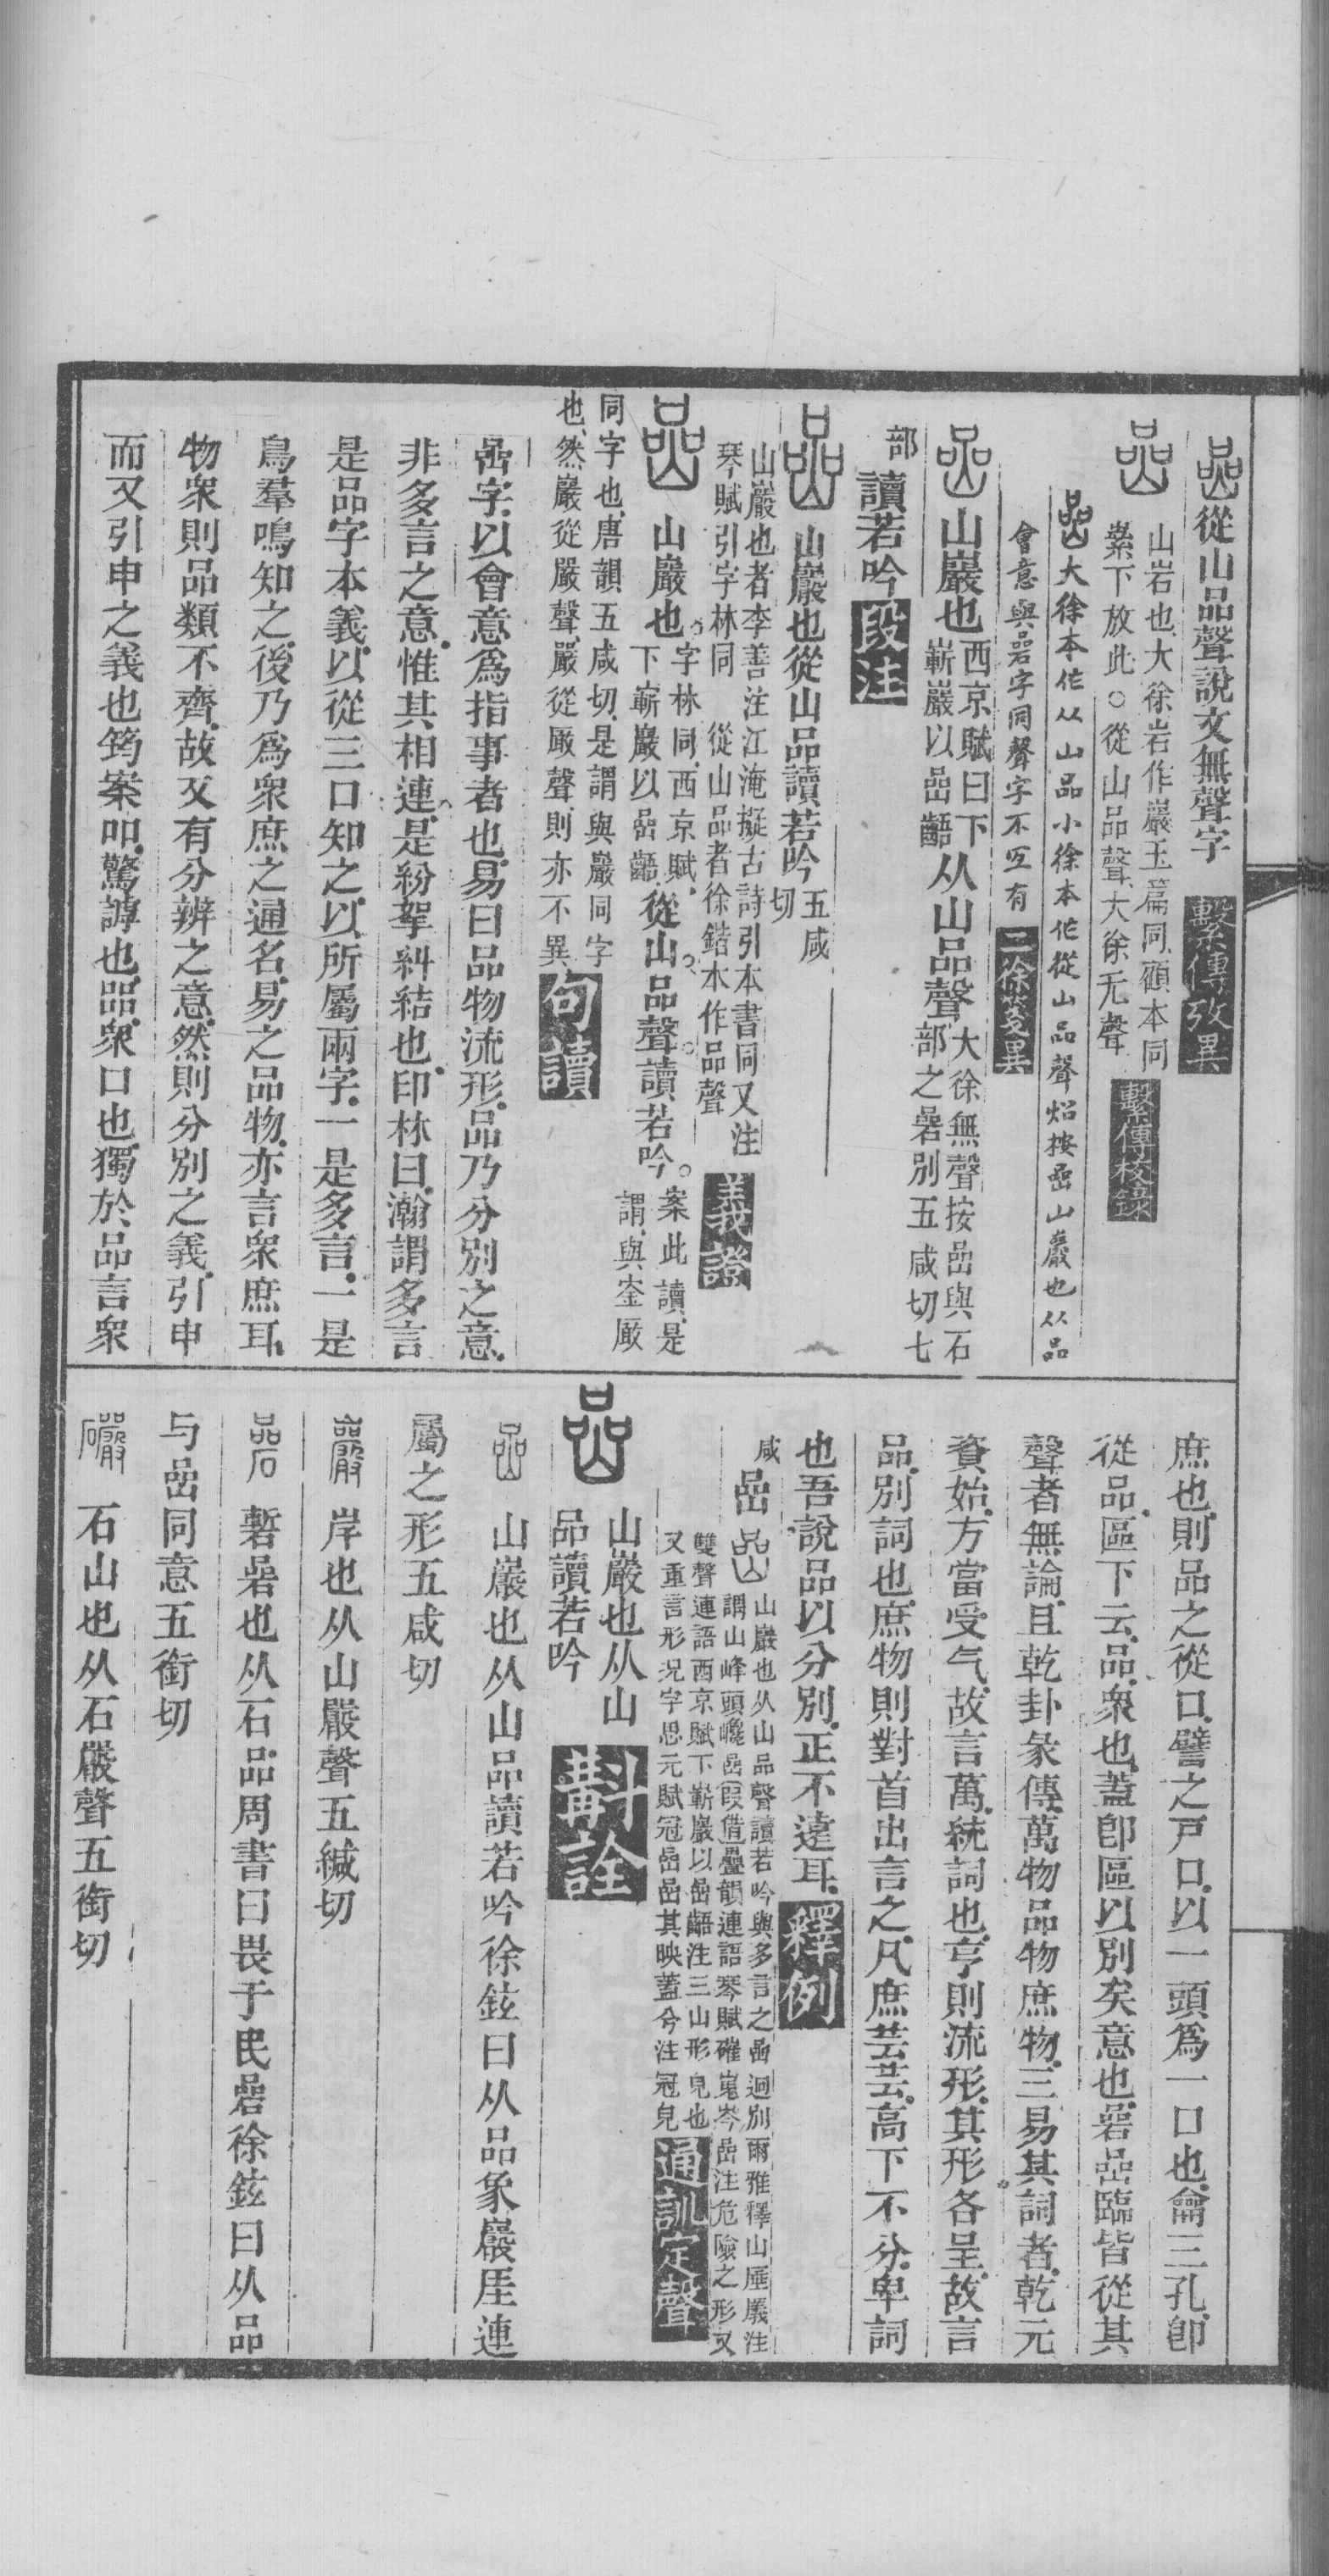 嵒從山品聲說文無聲字　繫傳攷異
嵒　山岩也大徐岩作巖玉篇同顧本同
㬪下放此○從山品聲大徐无聲　繫傳校錄
嵒大徐本作从山品小徐本作從山品聲炤按嵒山巖也从品
會意與碞字同聲字不宐有　二徐箋異
嵒　山巖也西京賦曰下嶄巖以嵒齬从山品聲大徐無聲按嵒與石部之碞別五咸切七
部讀若吟　段注
嵒　山巖也從山品讀若吟五咸切
山巖也者李善注江淹擬古詩引本書同又注
琴賦引字林同　從山品者徐鍇本作品聲　義證
嵒　山巖也字林同西京賦下嶄巖以嵒齬從山品聲讀若吟案此讀是謂與崟厰
同字也唐韻五咸切是謂與巖同字
也然巖從嚴聲嚴從厰聲則亦不異　句讀
嵒字以會意爲指事者也易曰品物流形品乃分別之意
非多言之意惟其相連是紛挐糾結也印林曰瀚謂多言
是品字本義以從三口知之以所屬兩字一是多言一是
鳥羣鳴知之後乃爲衆庶之通名易之品物亦言衆庶耳
物衆則品類不齊故又有分辨之意然則分別之義引申
而又引申之義也筠案吅驚嘑也品衆口也獨於品言衆
庶也則品之從口譬之戸口以一頭爲一口也龠三孔卽
從品區下云品衆也蓋卽區以別矣意也碞嵒臨皆從其
聲者無論且乾卦彖傳萬物品物庶物三易其詞者乾元
資始方當受气故言萬統詞也亨則流形其形各呈故言
品別詞也庶物則對首出言之凡庶芸芸高下不分卑詞
也吾說品以分別正不違耳　釋例
咸嵒　嵒　山巖也从山品聲讀若吟與多言之嵒迥別爾雅釋山厓巖注
謂山峰頭巉嵒叚借疊韻連語琴賦磪嵬岑嵒注危險之形又
雙聲連語西京賦下嶄巖以嵒齬注三山形皃也
又重言形況字思元賦冠嵒嵒其映蓋兮注冠皃　通訓定聲
嵒　山巖也从山
品讀若吟　斠詮
嵒　山巖也从山品讀若吟徐鉉曰从品象巖厓連
屬之形五咸切
巖　岸也从山嚴聲五緘切
碞　磛碞也从石品周書曰畏于民碞徐鉉曰从品
与嵒同意五銜切
礹　石山也从石嚴聲五銜切